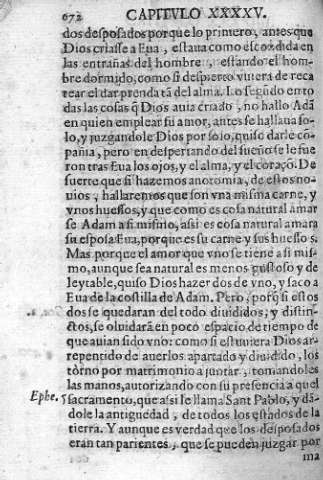 672 CAPITVLO XXXXV.
dos desposados porque lo primero, antes que
Dios criasse a Eua, estaua como escondida en
las entrañas del hombre, y estando el hom-
bre dormido, como si despierto vuiera de reca
tear el dar prenda tã del alma. Lo segũdo en to
das las cosas q̃ Dios auia criado, no hallo Adã
en quien emplear su amor, antes se hallaua so-
lo, y juzgandole Dios por solo, quiso darle cõ-
pañia, pero en despertando del sueño se le fue
ron tras Eua los ojos, y el alma, y el coraçõ. De
suerte que si hazemos anotomia, de estos no-
uios, hallaremos que son vna misma carne, y
vnos huessos, y que como es cosa natural amar
se Adam a si mismo, assi es cosa natural amara
su esposa Eua, porque es su carne y sus huessos.
Mas porque el amor que vno se tiene a si mis-
mo, aunque sea natural es menos gustoso y de
leytable, quiso Dios hazer dos de vno, y saco a
Eua de la costilla de Adam. Pero, porq̃ si estos
dos se quedaran del todo diuididos, y distin-
ctos, se oluidarã en poco espacio de tiempo de
que auian sido vno: como si estuuiera Dios ar-
repentido de auerlos apartado y diuidido, los
tornò por matrimonio a juntar, tomandoles
las manos, autorizando con su presencia aquel
Ephe. 5 sacramento, que assi le llama Sant Pablo, y dã-
dole la antiguedad, de todos los estados de la
tierra. Y aunque es verdad que los desposados
eran tan parientes, que se pueden juzgar por